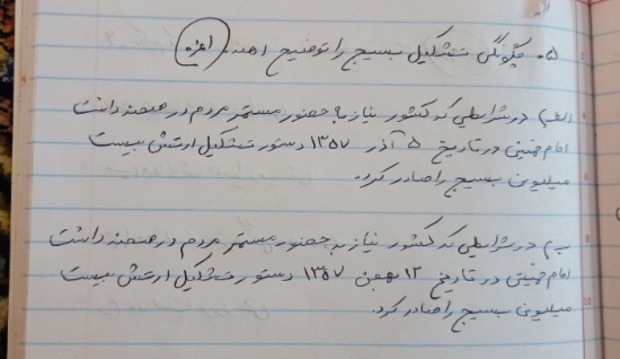 ۵. چگونگی تشکیل بسیج را توضیح دهید.
الف) در شرایطی که کشور نیاز به حضور مستمر مردم در صحنه داشت
امام خمینی در تاریخ ۵ آذر ۱۳۵۷ دستور تشکیل ارتش بیست
میلیونی بسیج را صادر کرد.
ب) در شرایطی که کشور نیاز به حضور مستمر مردم در صحنه داشت
امام خمینی در تاریخ ۱۲ بهمن ۱۳۵۷ دستور تشکیل ارتش بیست
میلیونی بسیج را صادر کرد.